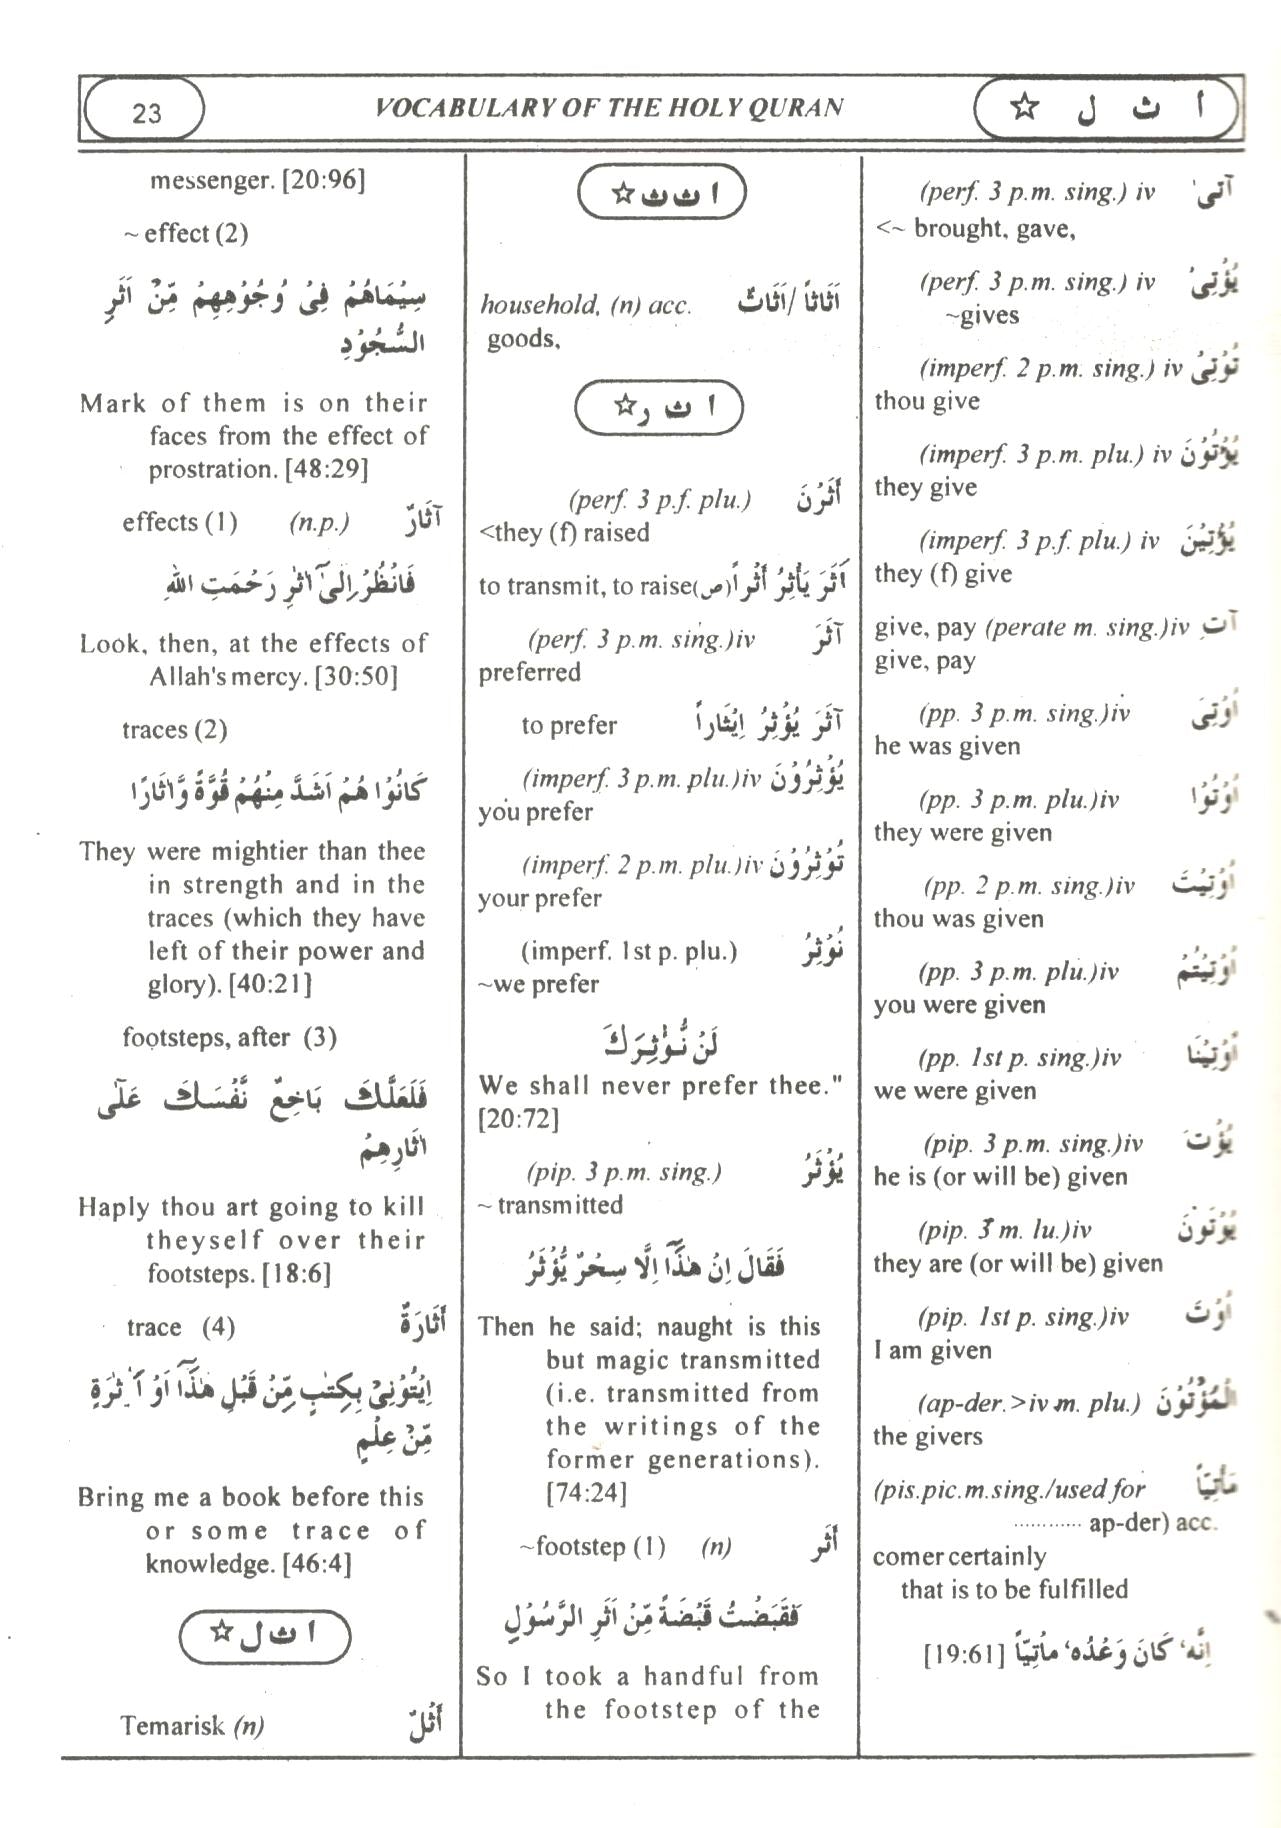 23
VOCABULARY OF THE HOLY QURAN
أ ث ل ☆
(perf. 3 p.m. sing.) iv آتىٰ
<~ brought, gave,
(perf. 3 p.m. sing.) iv يُؤْتِىْ
~gives
(imperf. 2 p.m. sing.) iv تُؤْتِىْ
thou give
(imperf. 3 p.m. plu.) iv يُؤْتُوْنَ
they give
(imperf. 3 p.f. plu.) iv يُؤْتِيْنَ
they (f) give
give, pay (perate m. sing.)iv آتِ
give, pay
(pp. 3 p.m. sing.)iv أُوْتِىَ
he was given
(pp. 3 p.m. plu.)iv أُوْتُوْا
they were given
(pp. 2 p.m. sing.)iv أُوْتِيْتَ
thou was given
(pp. 3 p.m. plu.)iv أُوْتِيْتُمْ
you were given
(pp. 1st p. sing.)iv أُوْتِيْنَا
we were given
(pip. 3 p.m. sing.)iv يُؤْتَ
he is (or will be) given
(pip. 3 m. lu.)iv يُؤْتَوْنَ
they are (or will be) given
(pip. 1st p. sing.)iv أُوْتَ
I am given
(ap-der.>iv m. plu.) الْمُؤْتُوْنَ
the givers
(pis.pic.m.sing./used for مَأْتِيّاً
........... ap-der) acc.
comer certainly
that is to be fulfilled
إِنَّهٗ كَانَ وَعْدُهٗ مأتِيّاً [19:61]
ا ث ث ☆
household, (n) acc. اَثَاثاً / اَثَاثٌ
goods,
ا ث ر ☆
(perf. 3 p.f. plu.) أَثَرْنَ
<they (f) raised
to transmit, to raise(ص) أَثَرَ يَأْثِرُ أَثْراً
(perf. 3 p.m. sing.)iv آثَرَ
preferred
to prefer آثَرَ يُؤْثِرُ اِيْثَاراً
(imperf. 3 p.m. plu.)iv يُؤْثِرُوْنَ
you prefer
(imperf. 2 p.m. plu.)iv تُؤْثِرُوْنَ
your prefer
(imperf. 1st p. plu.) نُؤْثِرُ
~we prefer
لَنْ نُّؤْثِرَكَ
We shall never prefer thee."
[20:72]
(pip. 3 p.m. sing.) يُؤْثَرُ
~ transmitted
فَقَالَ اِنْ هٰذَآ اِلَّا سِحْرٌ يُّؤْثَرُ
Then he said; naught is this
but magic transmitted
(i.e. transmitted from
the writings of the
former generations).
[74:24]
~footstep (1) (n) أَثَر
فَقَبَضْتُ قَبْضَةً مِّنْ اَثَرِ الرَّسُوْلِ
So I took a handful from
the footstep of the
messenger. [20:96]
~ effect (2)
سِيْمَاهُمْ فِىْ وُجُوْهِهِمْ مِّنْ اَثَرِ
السُّجُوْدِ
Mark of them is on their
faces from the effect of
prostration. [48:29]
effects (1) (n.p.) آثَارٌ
فَانْظُرْ اِلٰىٓ اٰثٰرِ رَحْمَتِ اللهِ
Look, then, at the effects of
Allah's mercy. [30:50]
traces (2)
كَانُوْا هُمْ اَشَدَّ مِنْهُمْ قُوَّةً وَّاٰثَارًا
They were mightier than thee
in strength and in the
traces (which they have
left of their power and
glory). [40:21]
footsteps, after (3)
فَلَعَلَّكَ بَاخِعٌ نَّفْسَكَ عَلٰٓى
اٰثَارِهِمْ
Haply thou art going to kill
theyself over their
footsteps. [18:6]
trace (4) أَثَارَةٌ
اِيْتُوْنِىْ بِكِتٰبٍ مِّنْ قَبْلِ هٰذَآ اَوْ اَثٰرَةٍ
مِّنْ عِلْمٍ
Bring me a book before this
or some trace of
knowledge. [46:4]
ا ث ل ☆
Temarisk (n) أَثْلٌ